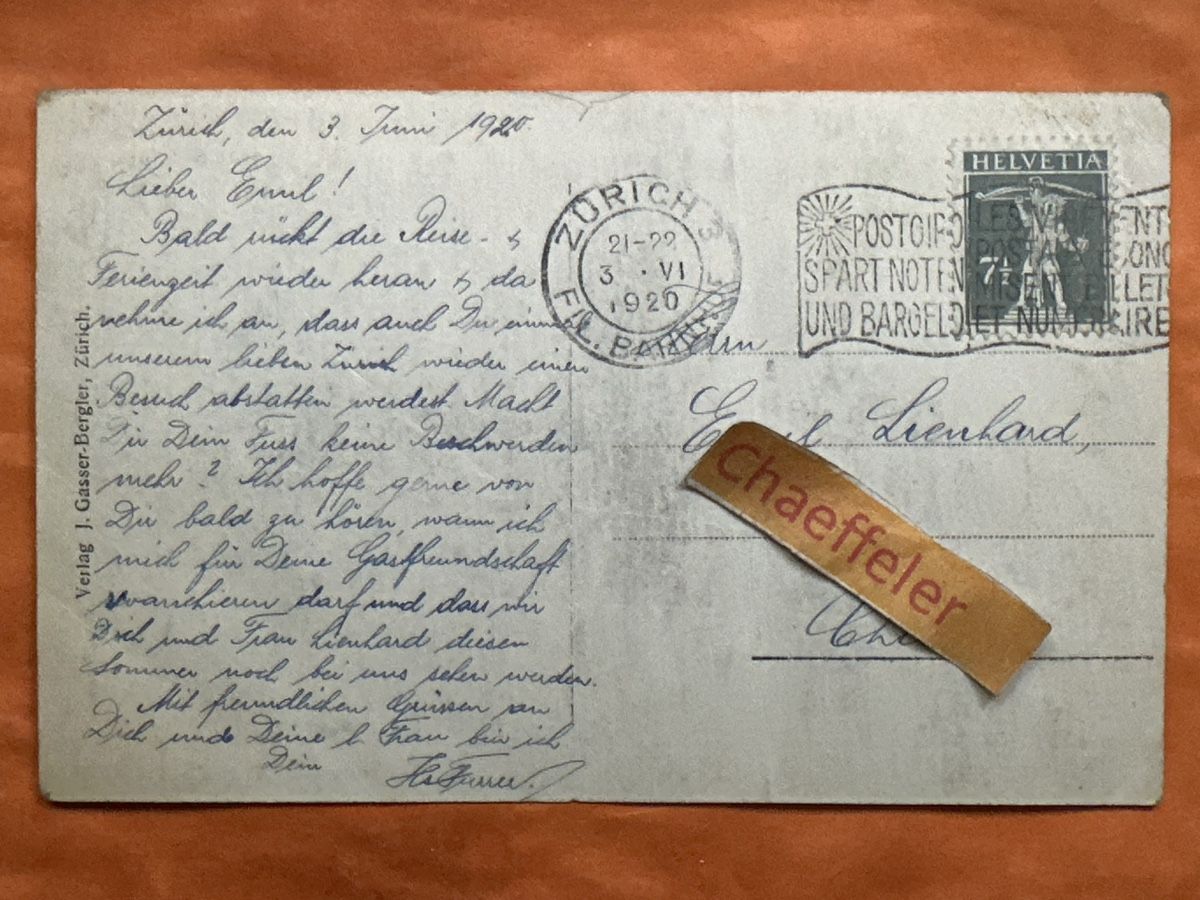 Zürich, den 3. Juni 1920.
Lieber Emil!
Bald rückt die Reise- &
Ferienzeit wieder heran & da
nehme ich an, dass auch Du einmal
unserem lieben Zürich wieder einen
Besuch abstatten werdest. Macht
Dir Dein Fuss keine Beschwerden
mehr? Ich hoffe gerne von
Dir bald zu hören, wann ich
mich für Deine Gastfreundschaft
revanchieren darf und dass wir
Dich und Frau Lienhard diesen
Sommer noch bei uns sehen werden.
Mit freundlichen Grüssen an
Dich und Deine l. Frau bin ich
Dein Hs Furrer.
Verlag J. Gasser-Bergler, Zürich.
ZÜRICH 3
21-22
3. VI
1920
FIL. BAHNHOF
POSTGIRO
SPART NOTEN
UND BARGELD
LES VIREMENTS
POSTAUX
ET NUMERAIRE
HELVETIA
7½
Herrn
Emil Lienhard,
Chaeffeler